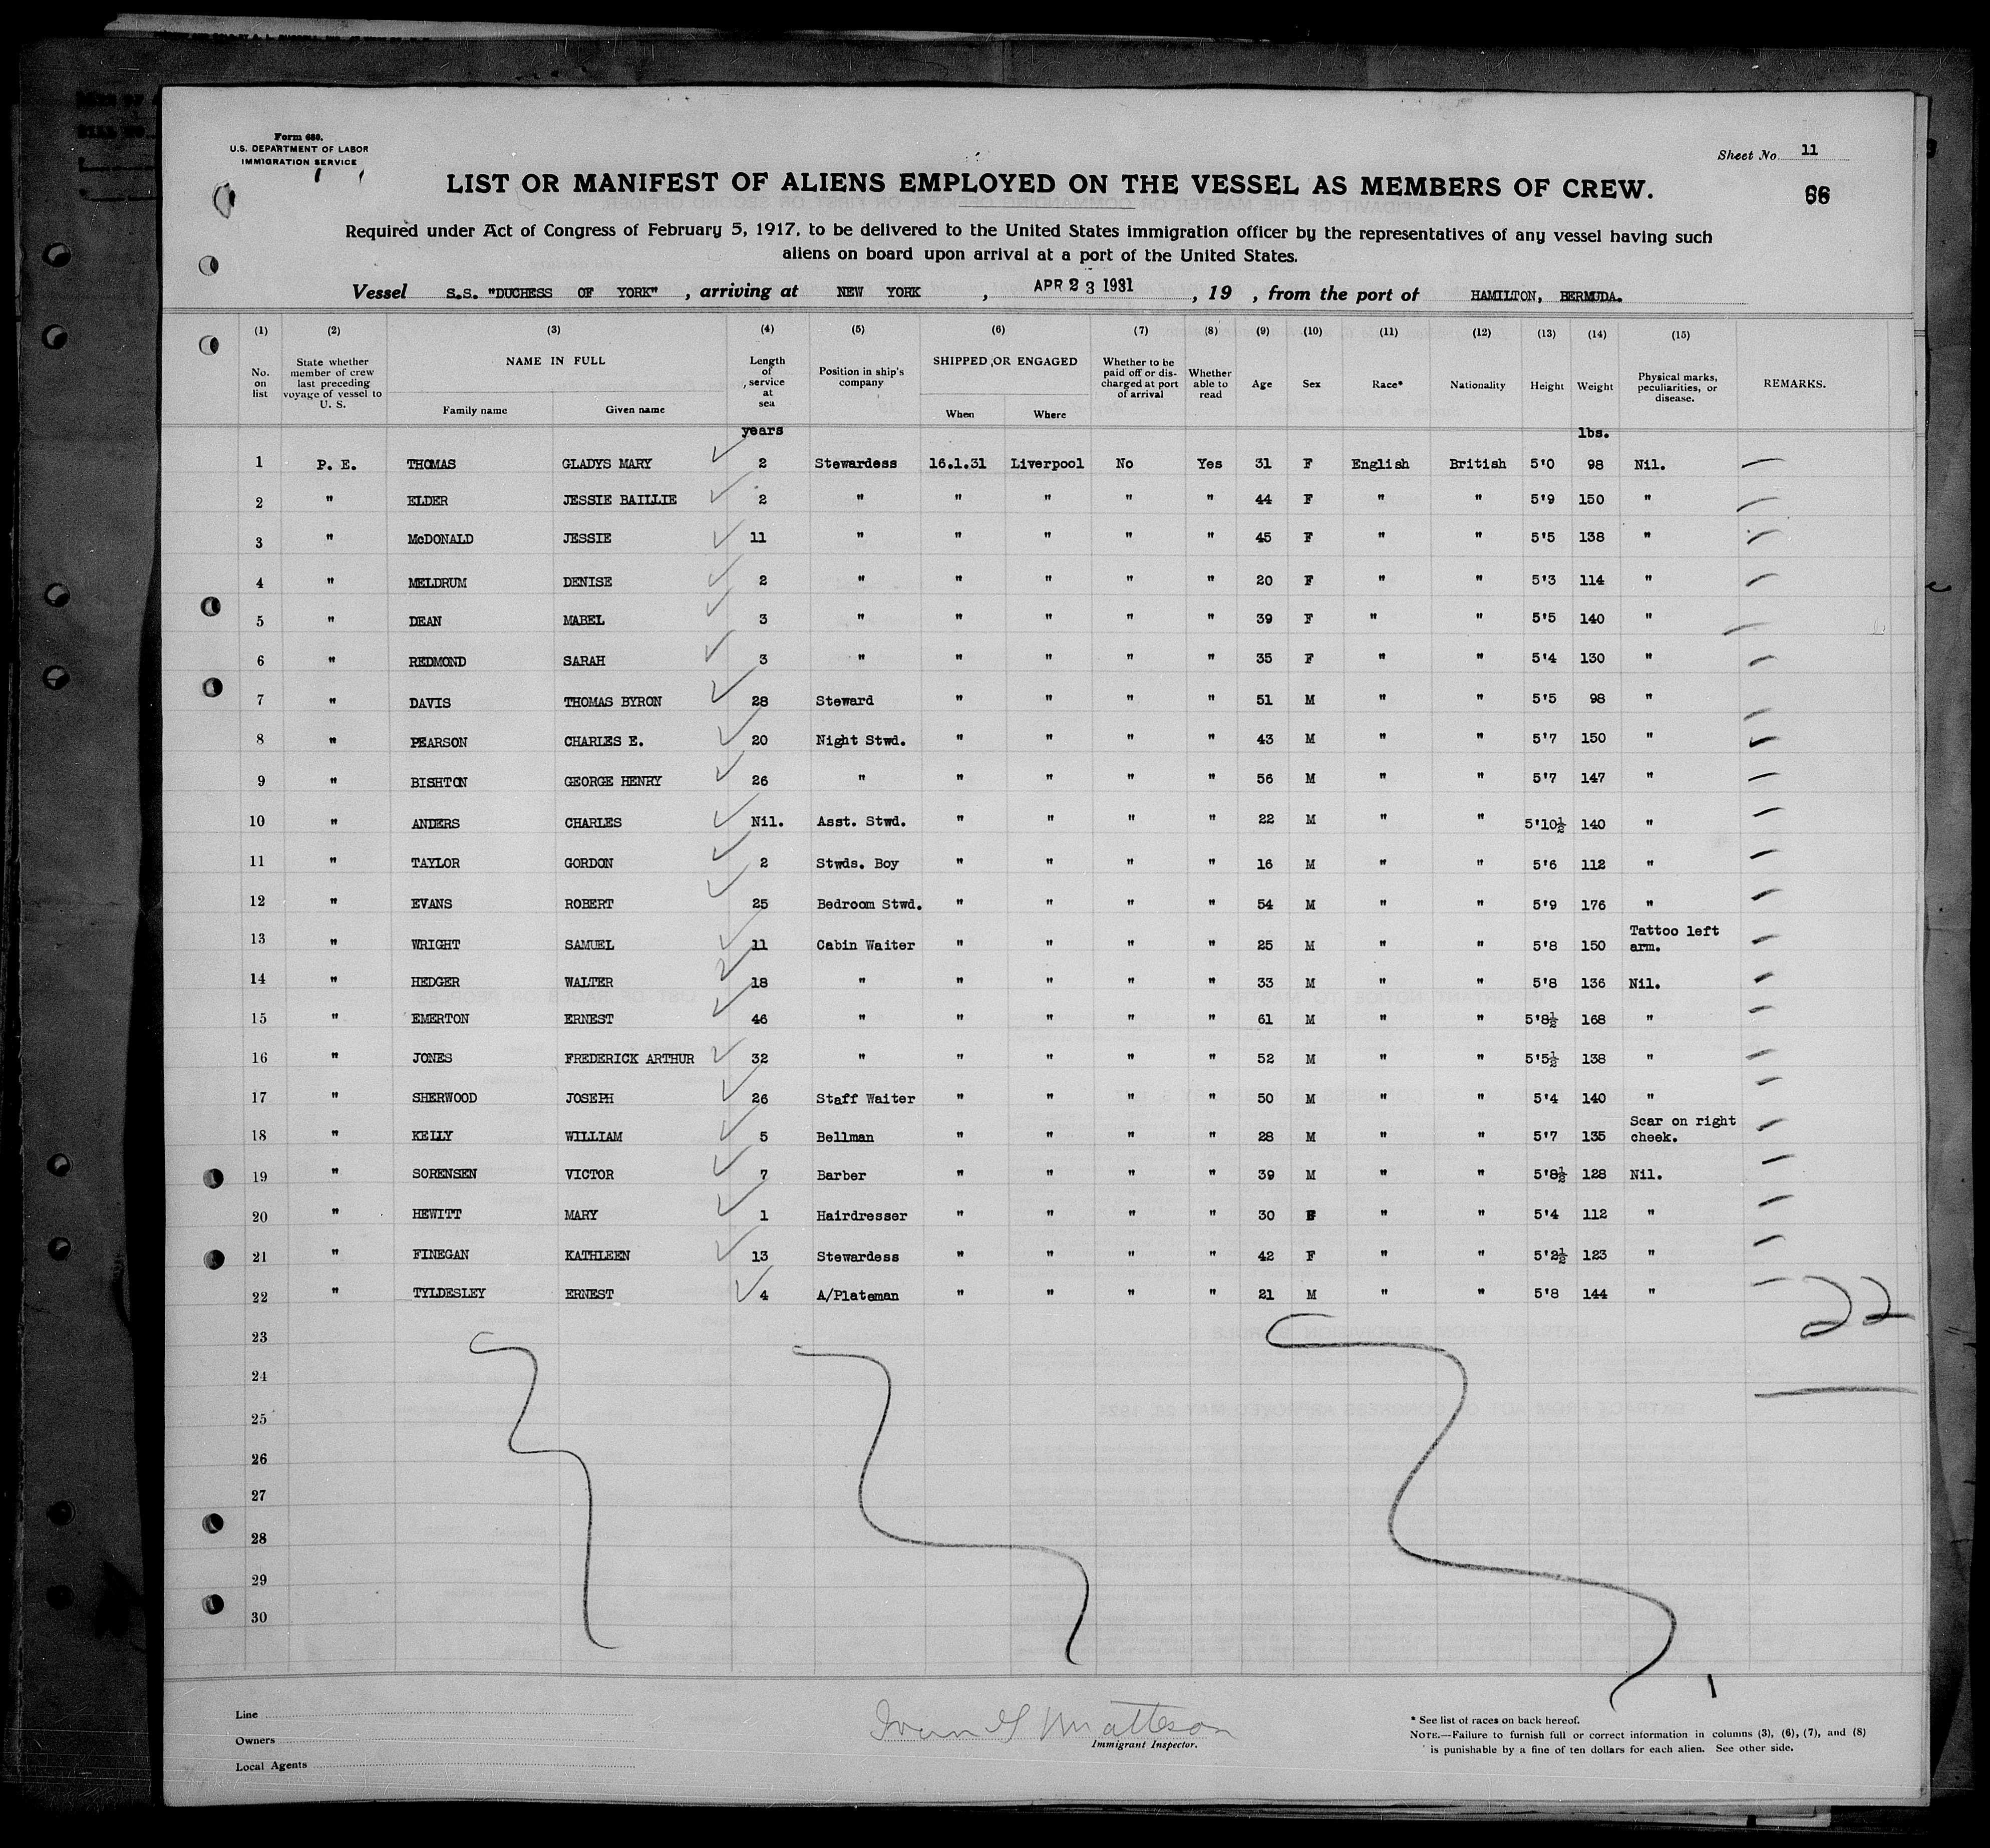 Form 680.
U.S. DEPARTMENT OF LABOR
IMMIGRATION SERVICE
Sheet No. 11
66
LIST OR MANIFEST OF ALIENS EMPLOYED ON THE VESSEL AS MEMBERS OF CREW.
Required under Act of Congress of February 5, 1917, to be delivered to the United States immigration officer by the representatives of any vessel having such
aliens on board upon arrival at a port of the United States.
Vessel S.S. "DUCHESS OF YORK" , arriving at NEW YORK , APR 23 1931 , 19 , from the port of HAMILTON, BERMUDA.
(1) (2) (3) (4) (5) (6) (7) (8) (9) (10) (11) (12) (13) (14) (15)
No. on list State whether member of crew last preceding voyage of vessel to U. S. NAME IN FULL Family name Given name Length of service at sea Position in ship's company SHIPPED OR ENGAGED When Where Whether to be paid off or discharged at port of arrival Whether able to read Age Sex Race* Nationality Height Weight Physical marks, peculiarities, or disease. REMARKS.
years lbs.
1 P. E. THOMAS GLADYS MARY 2 Stewardess 16.1.31 Liverpool No Yes 31 F English British 5'0 98 Nil.
2 " ELDER JESSIE BAILLIE 2 " " " " " 44 F " " 5'9 150 "
3 " McDONALD JESSIE 11 " " " " " 45 F " " 5'5 138 "
4 " MELDRUM DENISE 2 " " " " " 20 F " " 5'3 114 "
5 " DEAN MABEL 3 " " " " " 39 F " " 5'5 140 "
6 " REDMOND SARAH 3 " " " " " 35 F " " 5'4 130 "
7 " DAVIS THOMAS BYRON 28 Steward " " " " 51 M " " 5'5 98 "
8 " PEARSON CHARLES E. 20 Night Stwd. " " " " 43 M " " 5'7 150 "
9 " BISHTON GEORGE HENRY 26 " " " " " 56 M " " 5'7 147 "
10 " ANDERS CHARLES Nil. Asst. Stwd. " " " " 22 M " " 5'10½ 140 "
11 " TAYLOR GORDON 2 Stwds. Boy " " " " 16 M " " 5'6 112 "
12 " EVANS ROBERT 25 Bedroom Stwd. " " " " 54 M " " 5'9 176 "
13 " WRIGHT SAMUEL 11 Cabin Waiter " " " " 25 M " " 5'8 150 Tattoo left arm.
14 " HEDGER WALTER 18 " " " " " 33 M " " 5'8 136 Nil.
15 " EMERTON ERNEST 46 " " " " " 61 M " " 5'8½ 168 "
16 " JONES FREDERICK ARTHUR 32 " " " " " 52 M " " 5'5½ 138 "
17 " SHERWOOD JOSEPH 26 Staff Waiter " " " " 50 M " " 5'4 140 "
18 " KELLY WILLIAM 5 Bellman " " " " 28 M " " 5'7 135 Scar on right cheek.
19 " SORENSEN VICTOR 7 Barber " " " " 39 M " " 5'8½ 128 Nil.
20 " HEWITT MARY 1 Hairdresser " " " " 30 F " " 5'4 112 "
21 " FINEGAN KATHLEEN 13 Stewardess " " " " 42 F " " 5'2½ 123 "
22 " TYLDESLEY ERNEST 4 A/Plateman " " " " 21 M " " 5'8 144 "
22
23
24
25
26
27
28
29
30
Line
Owners
Local Agents
Ivan G Matteson
Immigrant Inspector.
* See list of races on back hereof.
NOTE.—Failure to furnish full or correct information in columns (3), (6), (7), and (8)
is punishable by a fine of ten dollars for each alien. See other side.